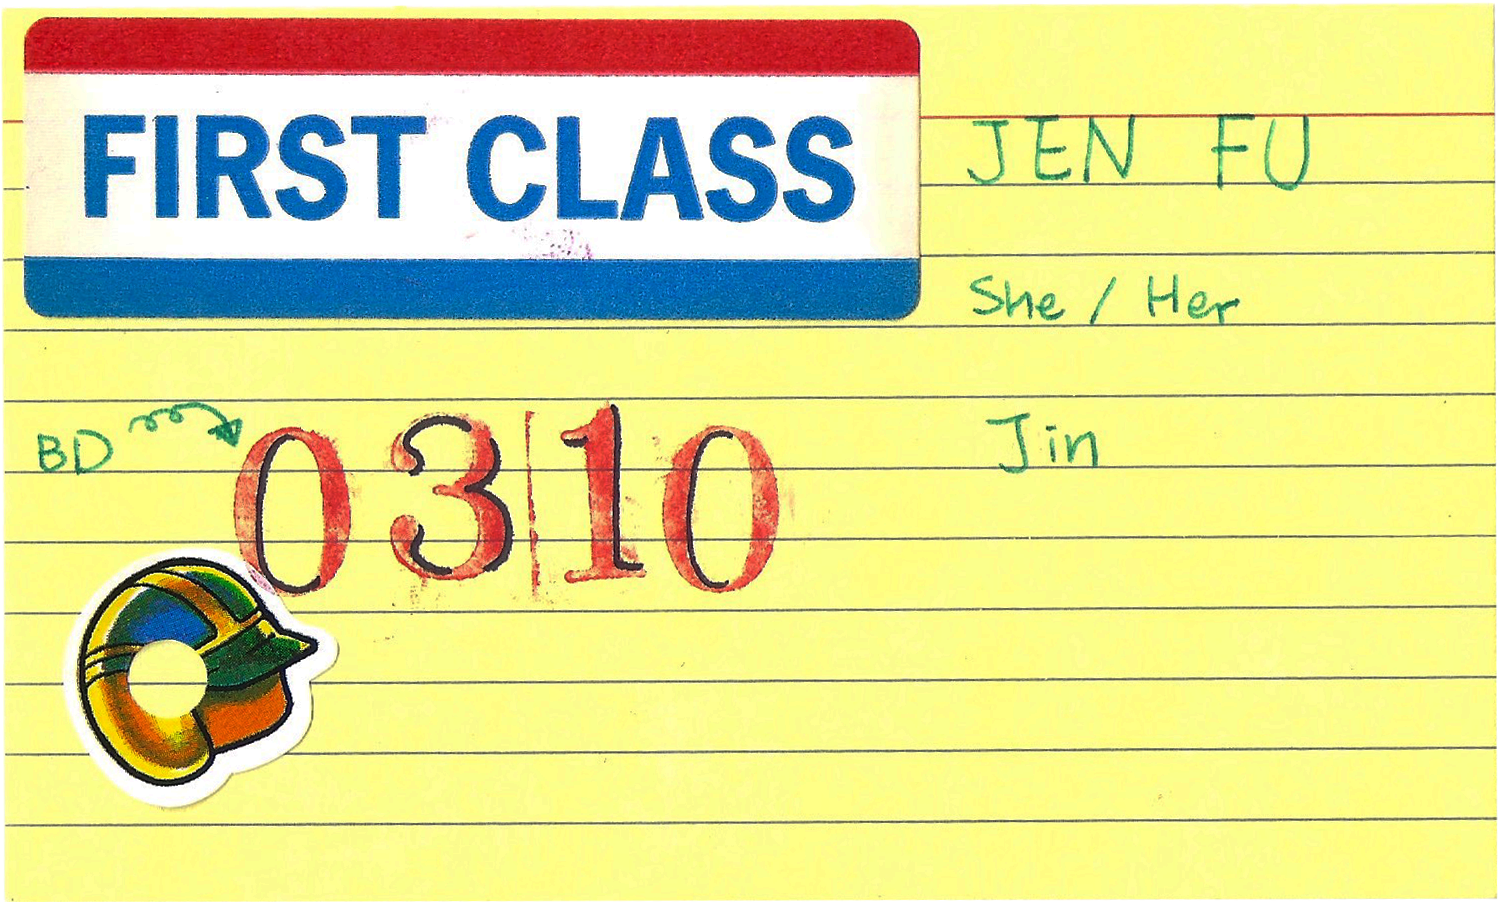 FIRST CLASS
JEN FU
She / Her
BD
03|10
Jin